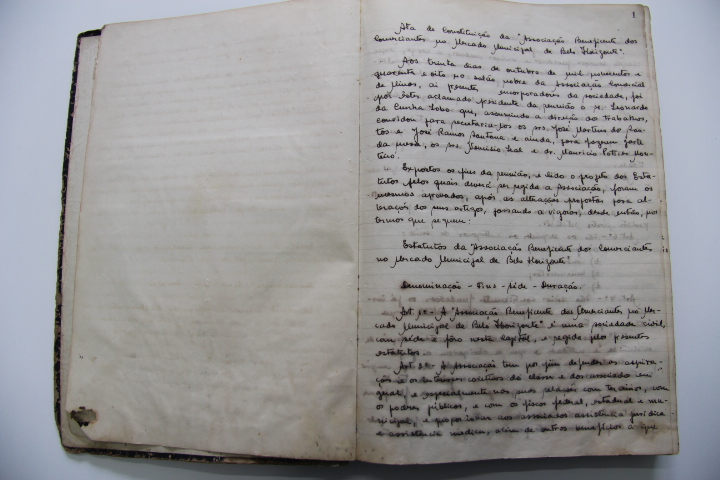 1
Ata de Constituição da "Associação Beneficente dos
Comerciantes no Mercado Municipal de Belo Horizonte".
Aos trinta dias de outubro de mil novecentos e
quarenta e oito no salão nobre da Associação Comercial
de Minas, aí presentes incorporadores da sociedade, foi
por estes aclamado presidente da reunião o sr. Leonardo
da Cunha Lobo que, assumindo a direção do trabalhos,
convidou para secretaria-los os srs. José Martins do San-
tos e José Ramos Santana e ainda, para fazerem parte
da mesa, os srs. Leal e dr. Mauricio
Expostos os fins da reunião, e lido o projeto dos Esta-
tutos pelos quais deverá ser regida a Associação, foram os
mesmos aprovados, após as alterações propostas para al-
teração dos seus artigos, passando a vigorar, desde então, nos
termos que seguem:
Estatutos da "Associação Beneficente dos Comerciantes
no Mercado Municipal de Belo Horizonte"
Denominação - Fins - Séde - Duração.
Art. 1º - A "Associação Beneficente dos Comerciantes no Mer-
cado Municipal de Belo Horizonte" é uma sociedade civil,
com séde e fôro nesta capital, e regida pelos presentes
estatutos.
Art. 2º - A Associação tem por fim defender as aspira-
ções e os interesses coletivos da classe e dos associados em
geral, e especialmente nas suas relações com terceiros, com
os poderes públicos, e com os fiscos federal, estadual e mu-
nicipal, e proporcionar aos associados assistência jurídica
e assistencia medica, além de outros beneficios a que